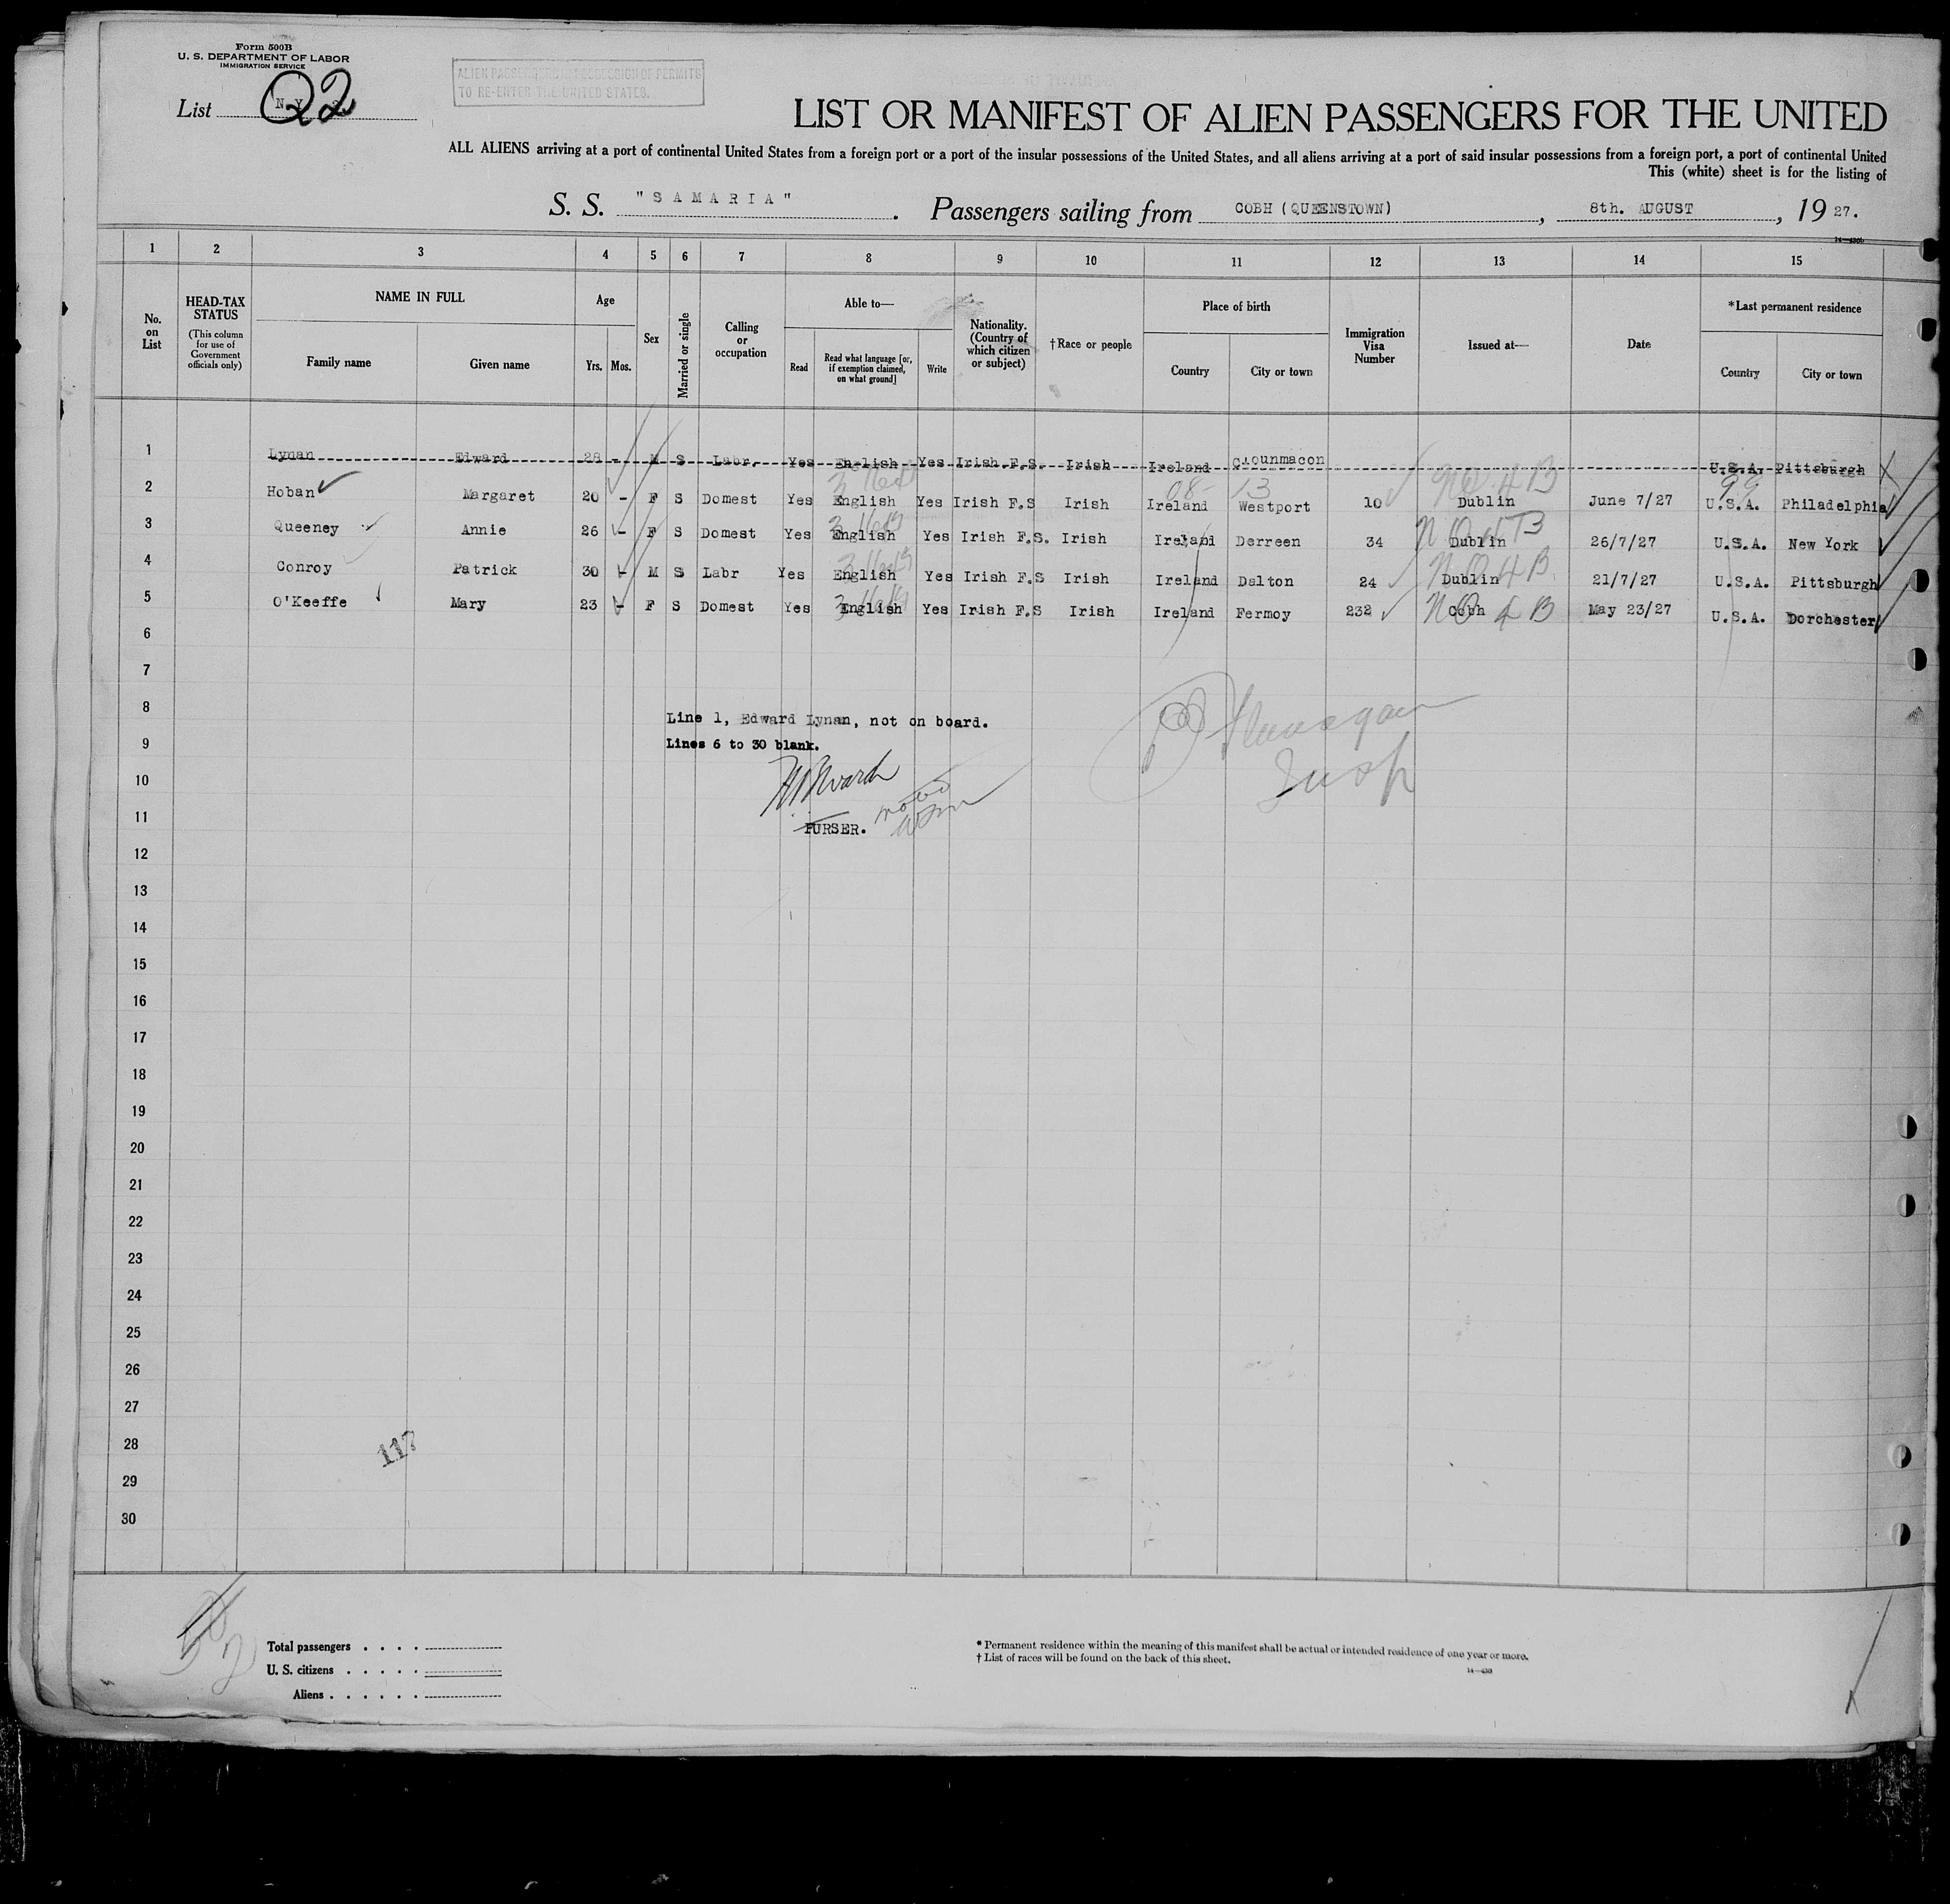 Form 500B
U. S. DEPARTMENT OF LABOR
IMMIGRATION SERVICE
List 22
ALIEN PASSENGERS IN POSSESSION OF PERMITS
TO RE-ENTER THE UNITED STATES.
LIST OR MANIFEST OF ALIEN PASSENGERS FOR THE UNITED
ALL ALIENS arriving at a port of continental United States from a foreign port or a port of the insular possessions of the United States, and all aliens arriving at a port of said insular possessions from a foreign port, a port of continental United
This (white) sheet is for the listing of
S. S. "SAMARIA". Passengers sailing from COBH (QUEENSTOWN), 8th. AUGUST, 1927.
1 2 3 4 5 6 7 8 9 10 11 12 13 14 15
No. on List
HEAD-TAX STATUS (This column for use of Government officials only)
NAME IN FULL Family name Given name
Age Yrs. Mos.
Sex
Married or single
Calling or occupation
Able to— Read Read what language [or, if exemption claimed, on what ground] Write
Nationality. (Country of which citizen or subject)
†Race or people
Place of birth Country City or town
Immigration Visa Number
Issued at—
Date
*Last permanent residence Country City or town
1 Lynan Edward 28 - M S Labr. Yes English Yes Irish F.S. Irish Ireland U.S.A. Pittsburgh
08- 13 No. 4 B 99
2 Hoban Margaret 20 - F S Domest Yes English Yes Irish F.S Irish Ireland Westport 10 Dublin June 7/27 U.S.A. Philadelphia
3 Queeney Annie 26 - F S Domest Yes English Yes Irish F.S. Irish Ireland Derreen 34 Dublin 26/7/27 U.S.A. New York
4 Conroy Patrick 30 - M S Labr Yes English Yes Irish F.S Irish Ireland Dalton 24 Dublin 21/7/27 U.S.A. Pittsburgh
5 O'Keeffe Mary 23 - F S Domest Yes English Yes Irish F.S Irish Ireland Fermoy 232 Cobh May 23/27 U.S.A. Dorchester
6
7
8
Line 1, Edward Lynan, not on board.
9
Lines 6 to 30 blank.
10
Insp
11
PURSER.
12
13
14
15
16
17
18
19
20
21
22
23
24
25
26
27
28
117
29
30
Total passengers . . . .
U. S. citizens . . . . .
Aliens . . . . . .
* Permanent residence within the meaning of this manifest shall be actual or intended residence of one year or more.
† List of races will be found on the back of this sheet.